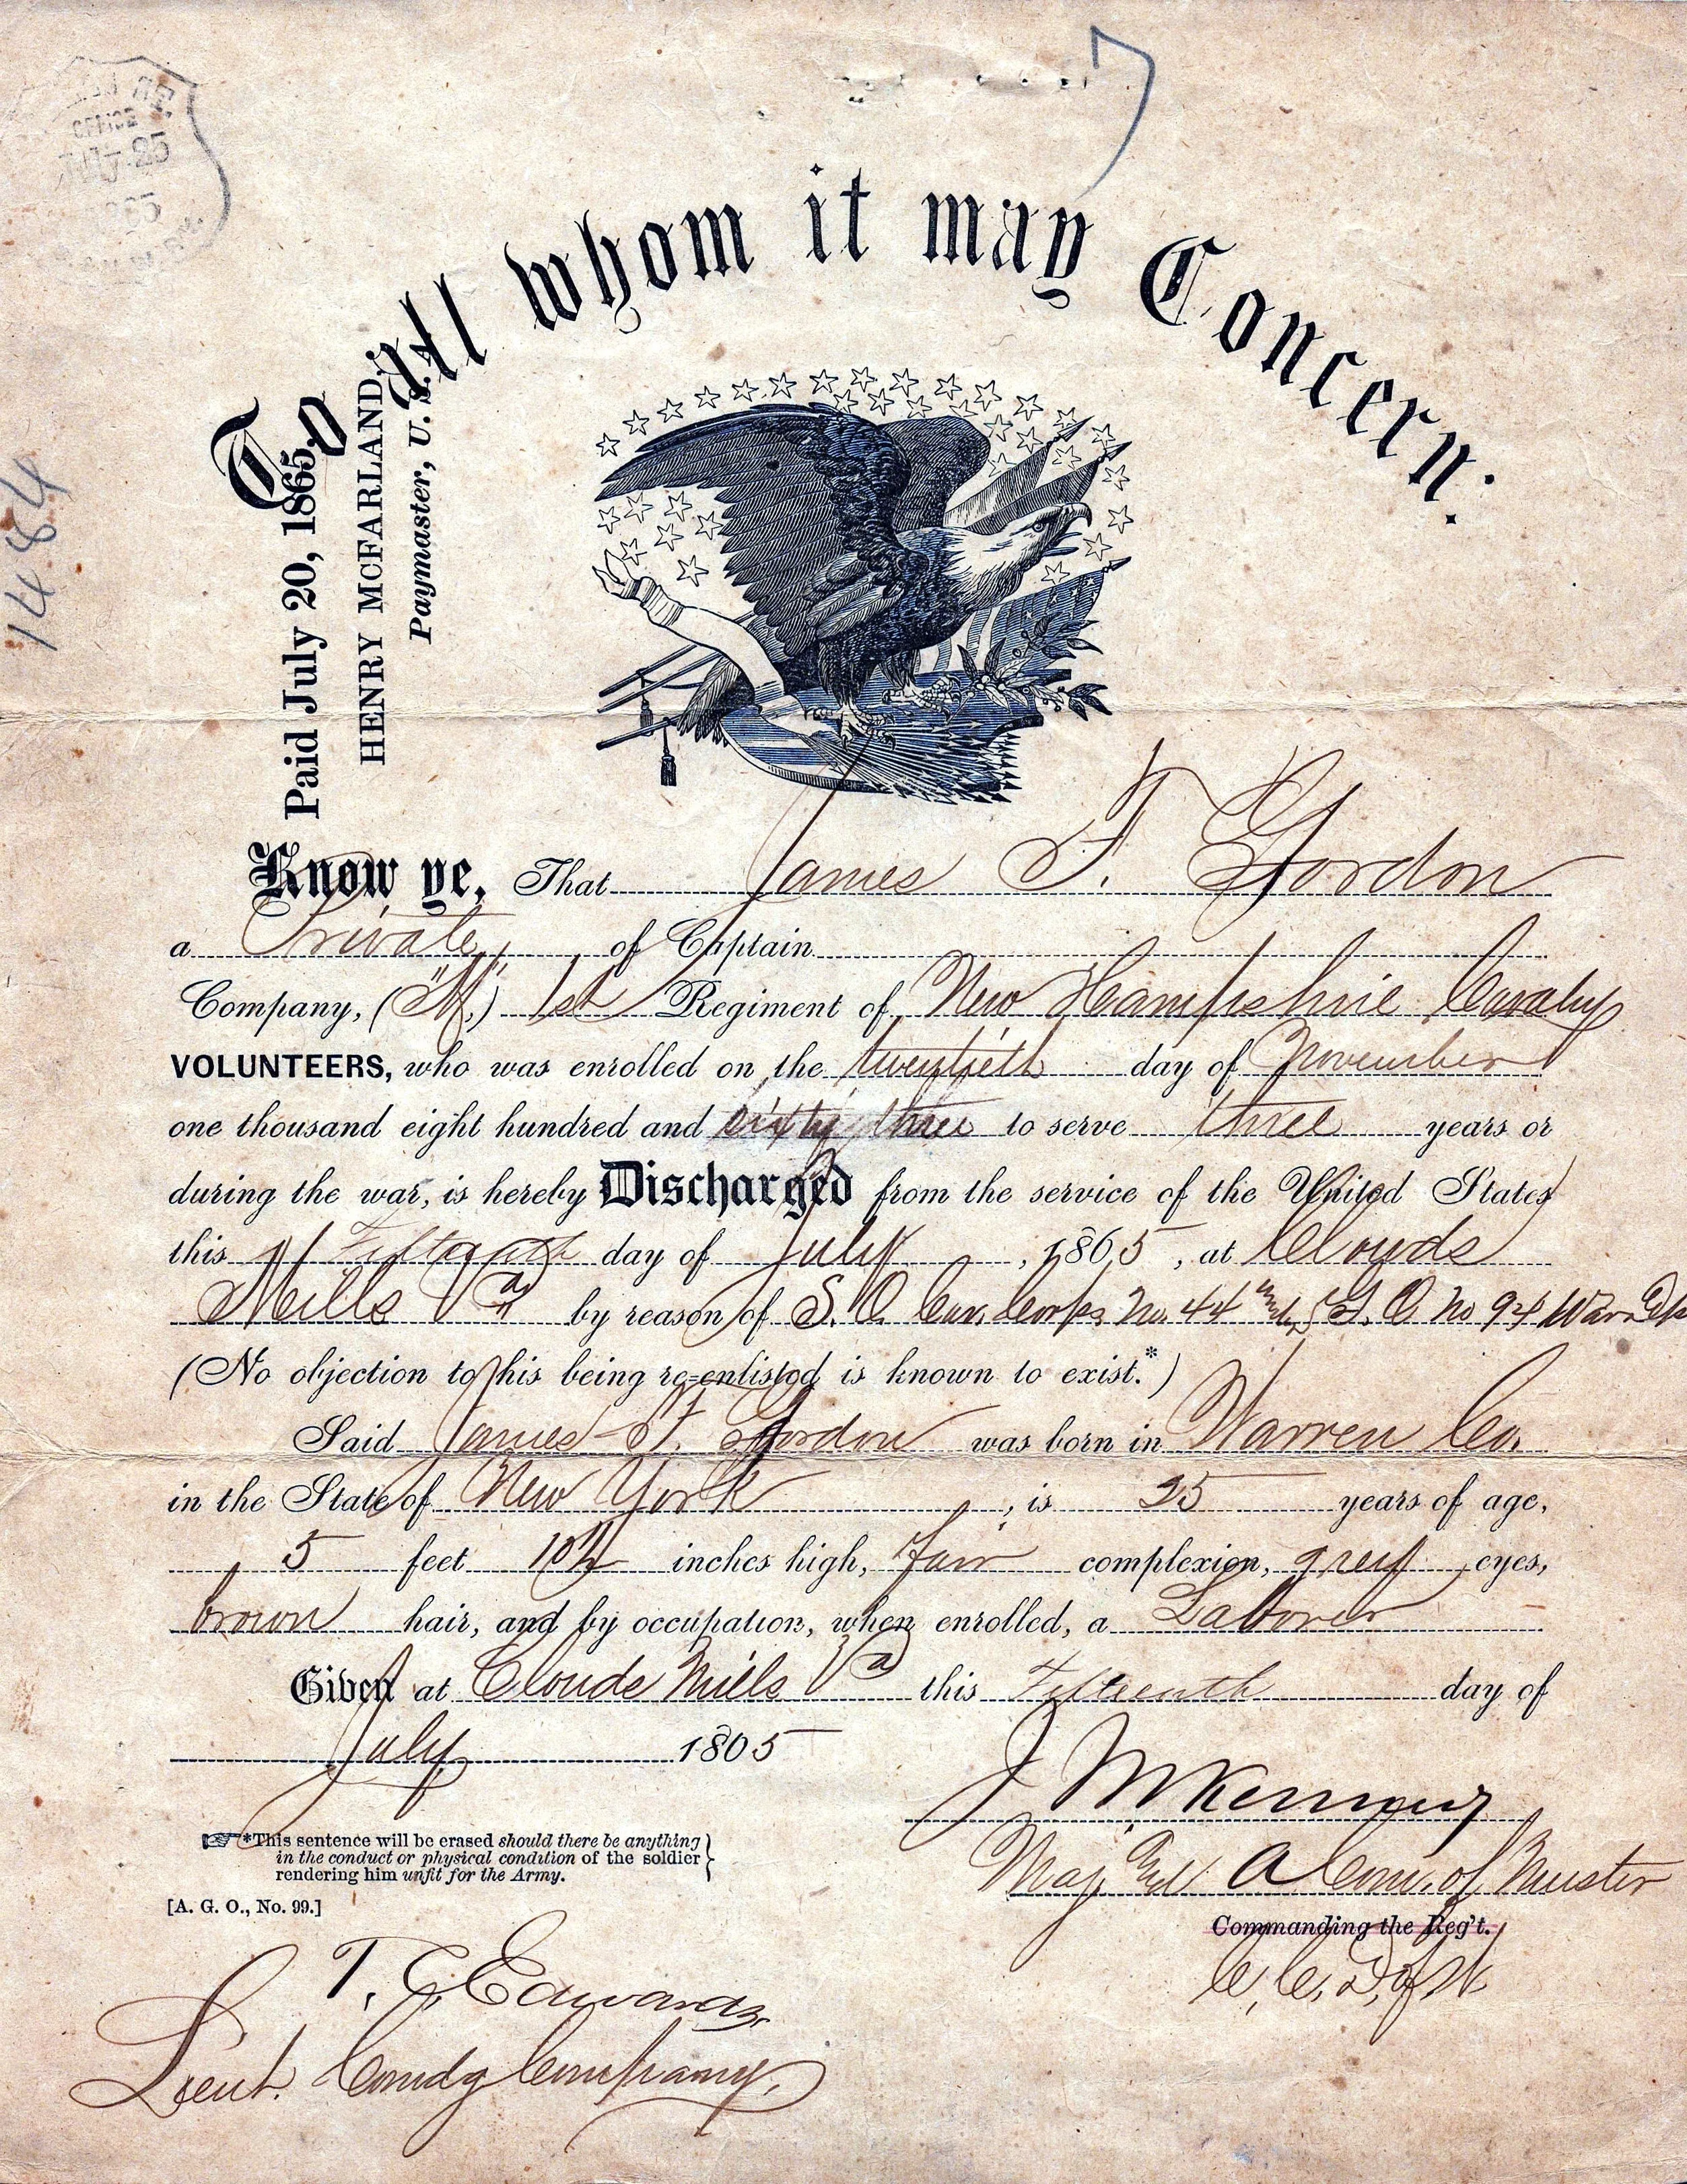 OFFICE
25
To all whom it may Concern:
1484
Paid July 20, 1865,
HENRY MCFARLAND,
Paymaster, U. S.
Know ye, That James F. Gordon
a Private of Captain
Company, ("M",) 1st Regiment of New Hampshire Cavalry
VOLUNTEERS, who was enrolled on the twentieth day of November
one thousand eight hundred and sixty three to serve three years or
during the war, is hereby Discharged from the service of the United States
this Fifteenth day of July, 1865, at Clouds
Mills Va by reason of S. O. Cav. Corps No. 44 G. O. No 94 War Dpt
(No objection to his being re-enlisted is known to exist.*)
Said James F. Gordon was born in Warren Co.
in the State of New York, is 25 years of age,
5 feet 10½ inches high, Fair complexion, grey eyes,
brown hair, and by occupation, when enrolled, a Laborer
Given at Clouds Mills Va this Fifteenth day of
July 1865
*This sentence will be erased should there be anything
in the conduct or physical condition of the soldier
rendering him unfit for the Army.
[A. G. O., No. 99.]
Maj. A Com. of Muster
Commanding the Reg't.
T. C. Edwards
Lieut. Comdg Company.